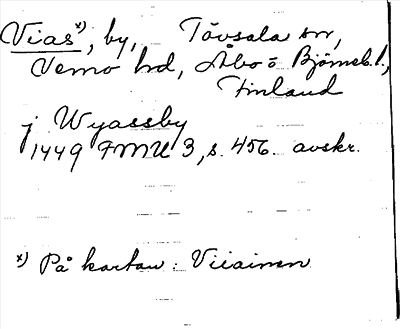 Vias x), by, Tövsala sn,
Vemo hd, Åbo o Björneb. l.,
Finland
j Wyassby
1449 FMU 3, s. 456. avskr.
x) På kartan: Viiainen